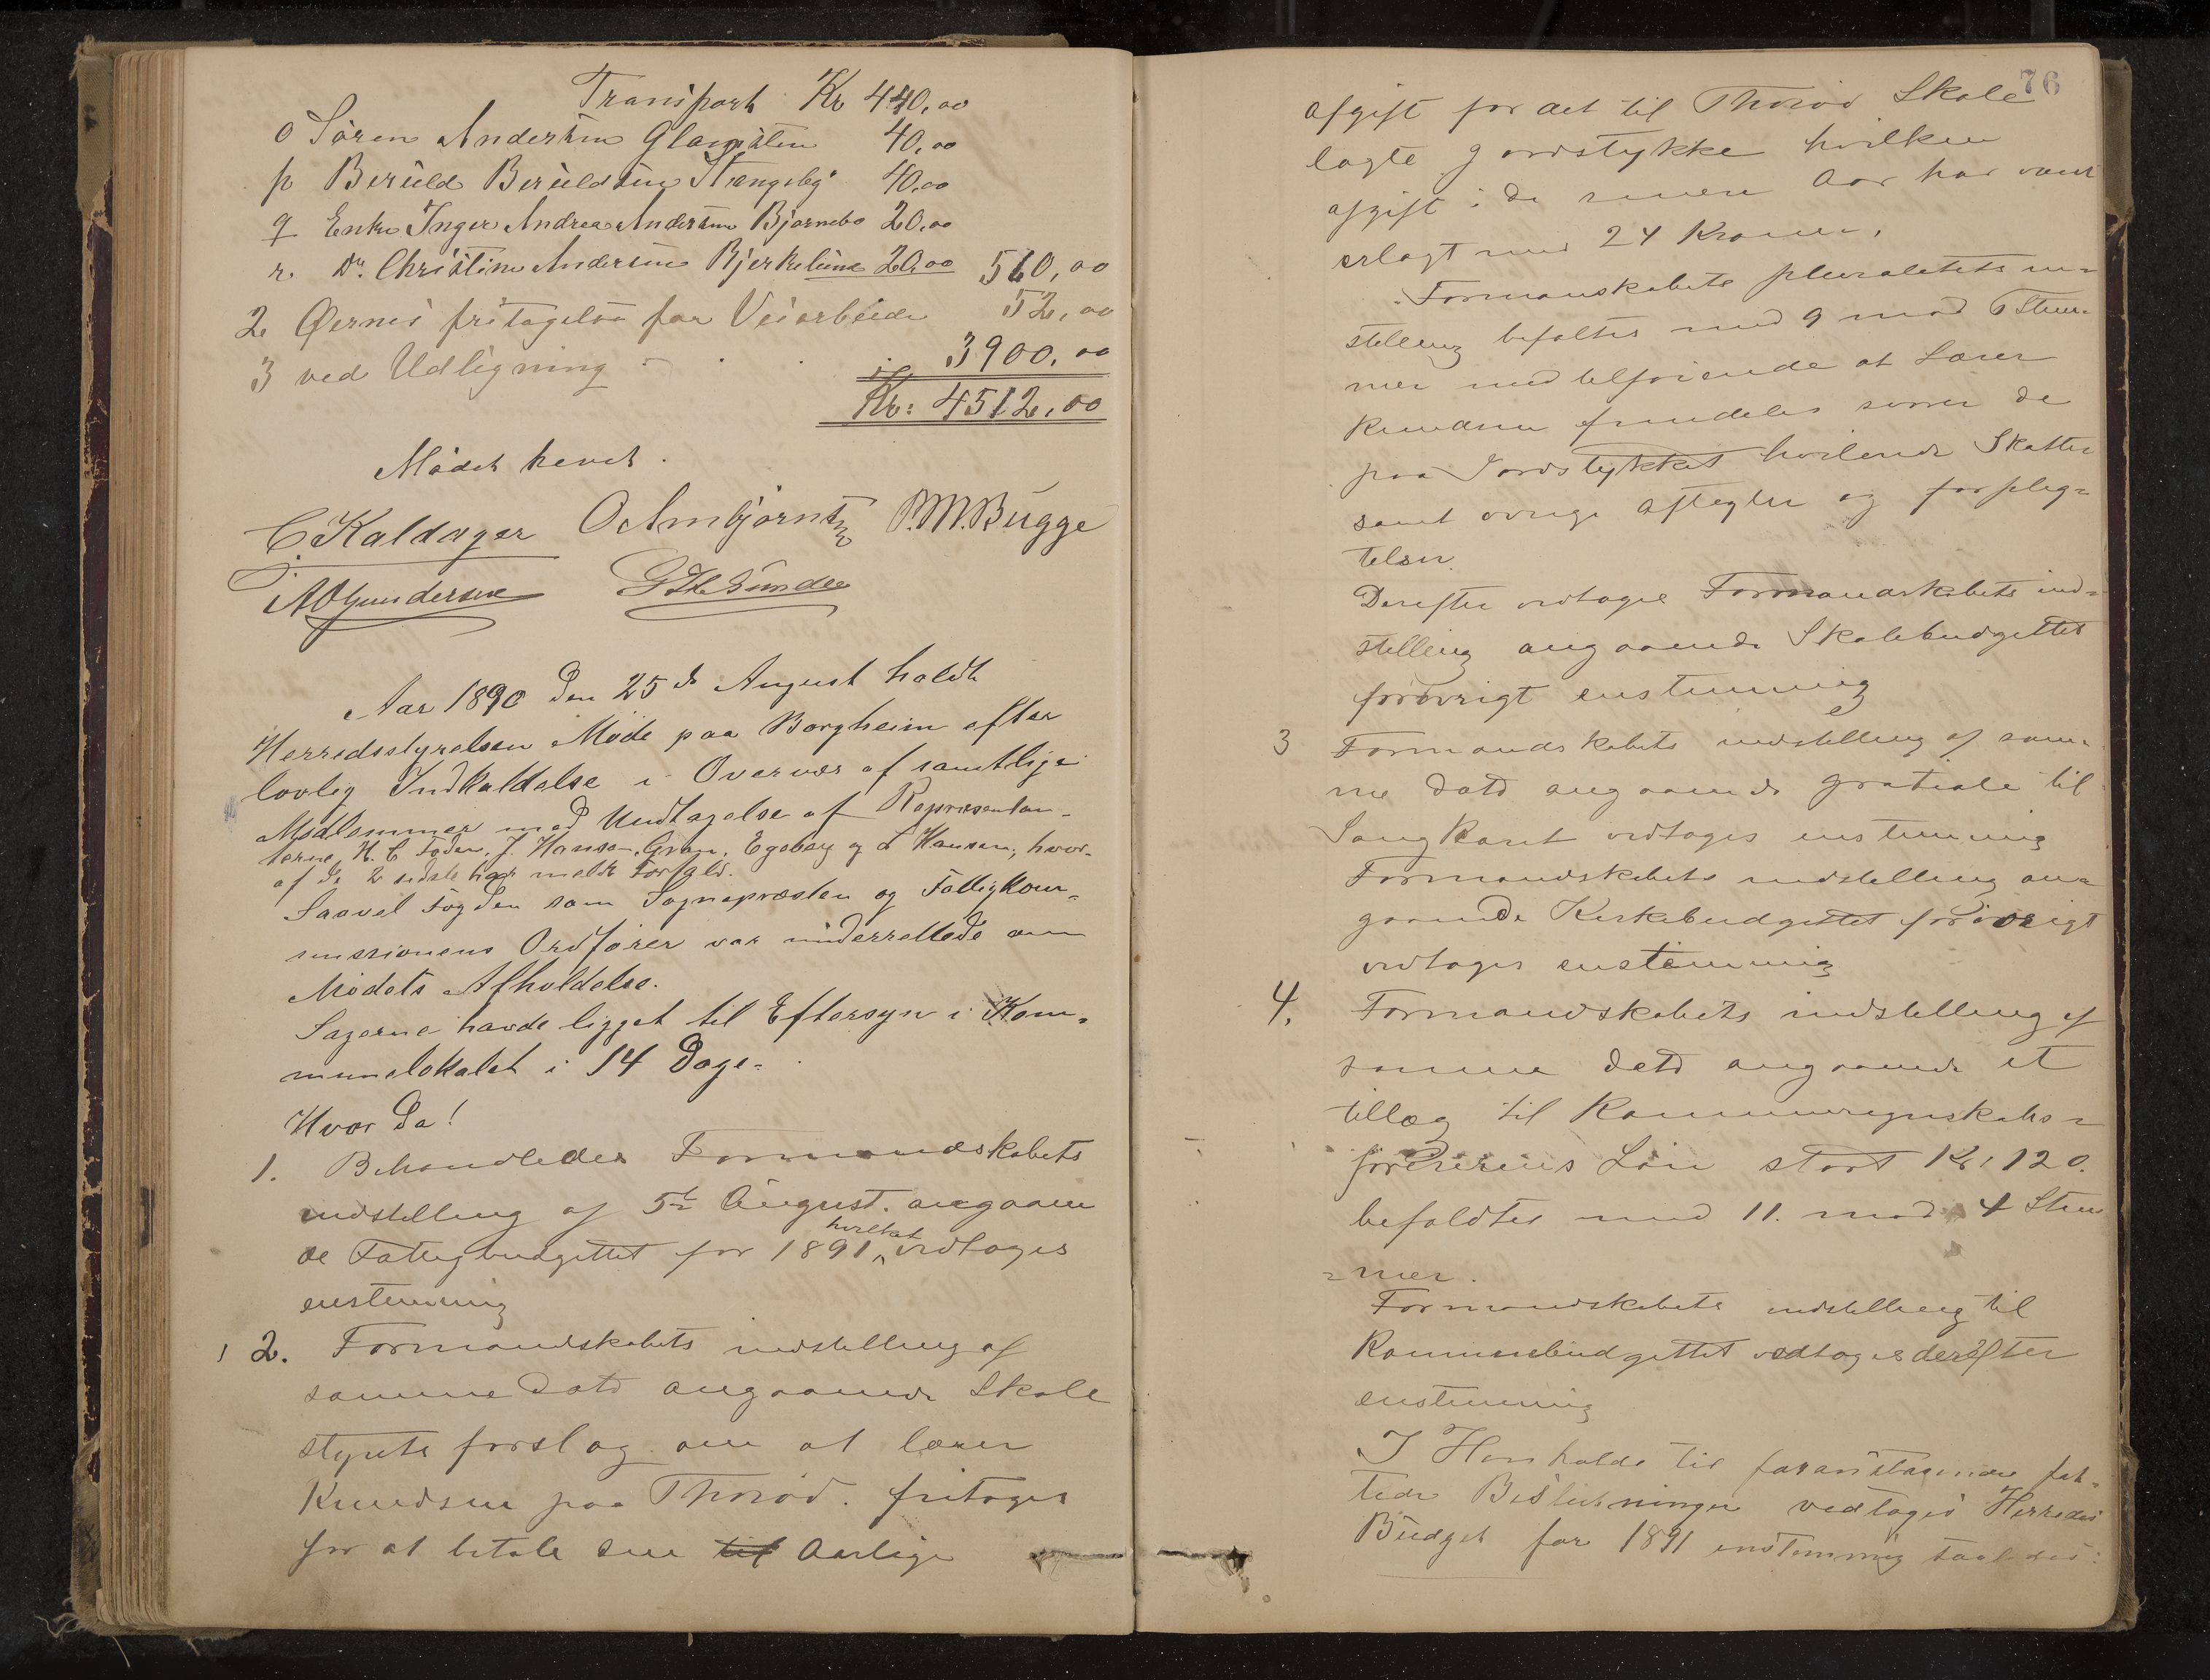 Transport Kr 440,00
o Sören Andersen Glamsten 40,00
p Beruld Beruldsen Stangeby 40,00
q Enke Inger Andrea Andersen Bjørnebo 20,00
r. Do. Christine Andersen Bjerkelund 20,00 560,00
2 Øernes fritagelse for Veiarbeide 52,00
3 ved Udligning 3900,00
Kr: 4512,00
Mødet hevet.
C. Kaldager O Arnbjørnsen P.M. Bugge
A O Gundersen G H Sunde
Aar 1890 den 25de August holdt
Herredsstyrelsen Møde paa Borgheim efter
lovlig Indkaldelse i Overvær af samtlige
Medlemmer med Undtagelse af Repræsentan-
terne, H. C Foden, J. Hanson, Gran, Egeberg og L Hansen, hvor-
af de 2 sidste har meldt Forfald.
Saavel Fogden som Sognepræsten og Fattigkom-
missionens Ordfører var underrettede om
Mødets Afholdelse.
Sagerne havde ligget til Eftersyn i Kom-
munelokalet i 14 Dage-
Hvor da!
1. Behandledes Formandskabets
indstilling af 5te August. angaaen
de Fattigbudgettet for 1891, hvilket vedtoges
enstemmig
2. Formandskabets indstilling af
samme Dato angaaende Skole
styrets forslag om at lærer
Knudsen paa Thorød. fritages
for at betale den til Aarlige
76
afgift for det til Thorød Skole
lagte jordstykke hvilken
afgift i de senere Aar har været
erlagt med 24 Kroner.
Formanskabets pluralitets in-
stilling befaltes med 9 mod 6 Stem-
mer med tilføiende at Lærer
Knudsen fremdeles svarer de
paa Jordstykket hvilende Skatter
samt øvrige afgifter og forplig-
telser.
Derefter vedtages Formandskabets ind-
stilling angaaende Skolebudgettet
forøvrigt enstemmig
3 Formandskabets indstilling af sam-
me Dato angaaende gratiale til
Sangkoret vedtoges enstemmig
Formandskabets indstilling an-
gaaende Kirkebudgettet forøvrigt
vedtages enstemmig
4. Formandskabets indstilling af
samme Dato angaaende et
tillæg til Kommuneregnskabs-
førerens Løn stort Kr: 120.
befaldtes med 11. mod 4 Stem
-mer.
Formandskabets indstilling til
Kommunebudgettet vedtoges derefter
enstemmig
I Henholde til foranstaaende fat-
tede Beslutninger vedtoges Herredes
Budget for 1891 enstemmig saaledes: